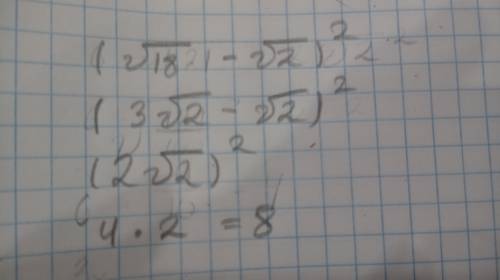 (√18 - √2)²
(3√2 - √2)²
(2√2)²
4 · 2 = 8